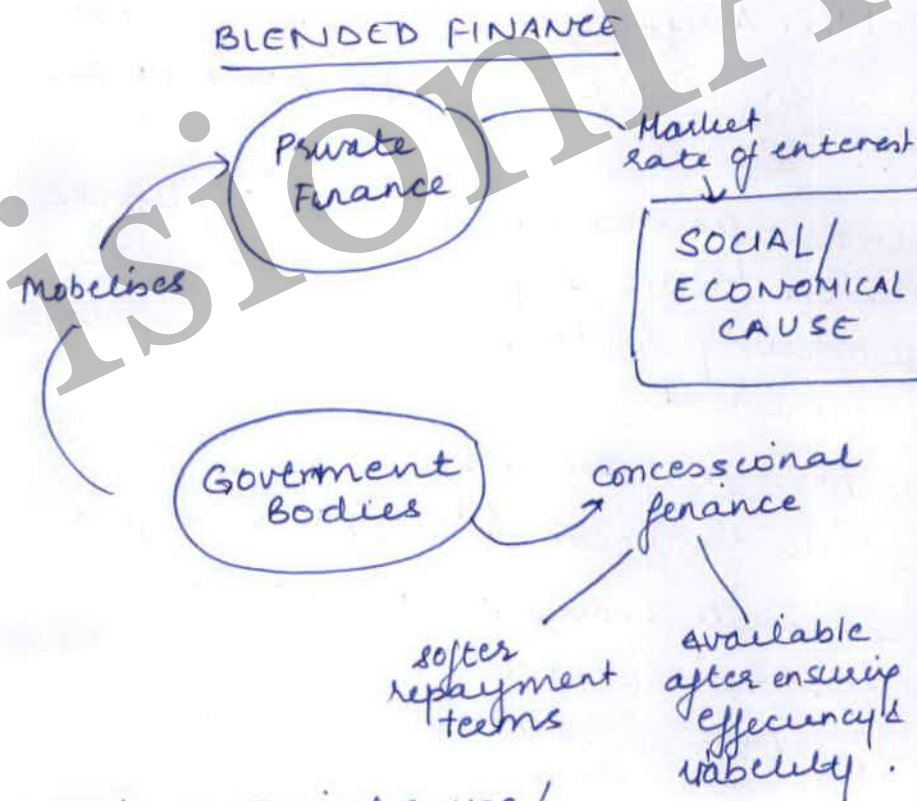 BLENDED FINANCE
Private
Finance
Market
rate of interest
SOCIAL/
ECONOMICAL
CAUSE
Mobilises
Government
Bodies
concessional
finance
softer
repayment
terms
available
after ensuring
efficiency &
viability.